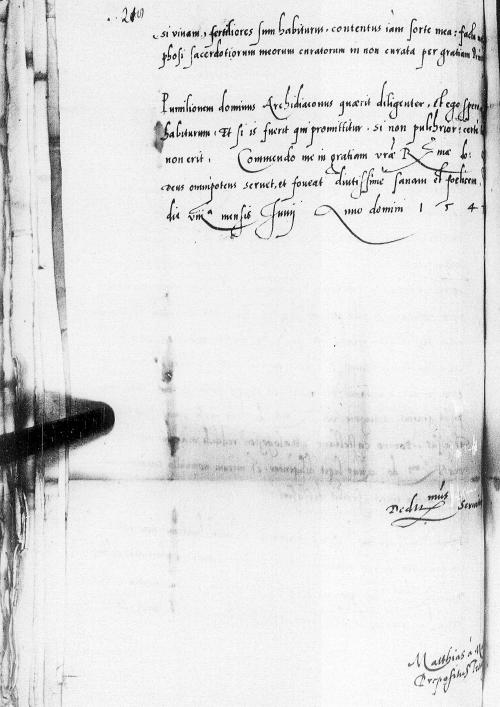 si vivam, fertiliores sum habiturus, contentus iam sorte mea: facta
phosi sacerdotiorum meorum curatorum in non curata per gratiam
Pumilionem dominus Archidiaconus quaerit diligenter, Et ego spero
habiturum, Et si is fuerit qui promittitur, si non pulchrior: certe
non erit. Commendo me in gratiam vrae Rmae do:
deus omnipotens servet, et foveat diutissime sanam et foelicem,
die viiia mensis Junij Anno domini 1 5 4
Dedmus Servit
Matthias a
Prepositus